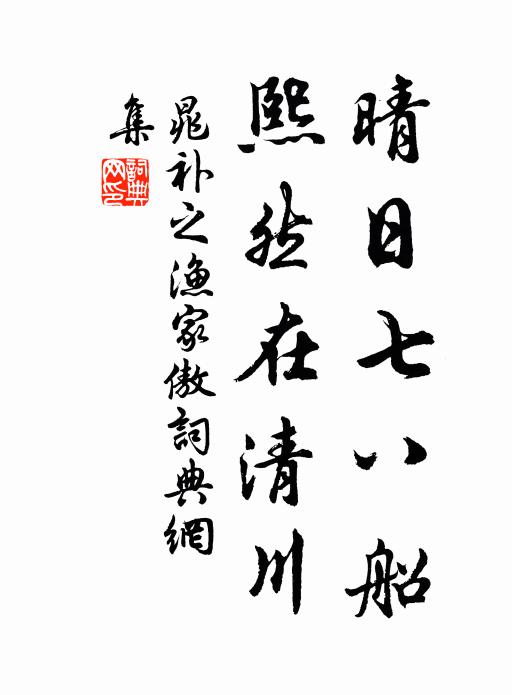 晴日七八船
熙然在清川
晁补之渔家傲詞典網
集
詞典网印